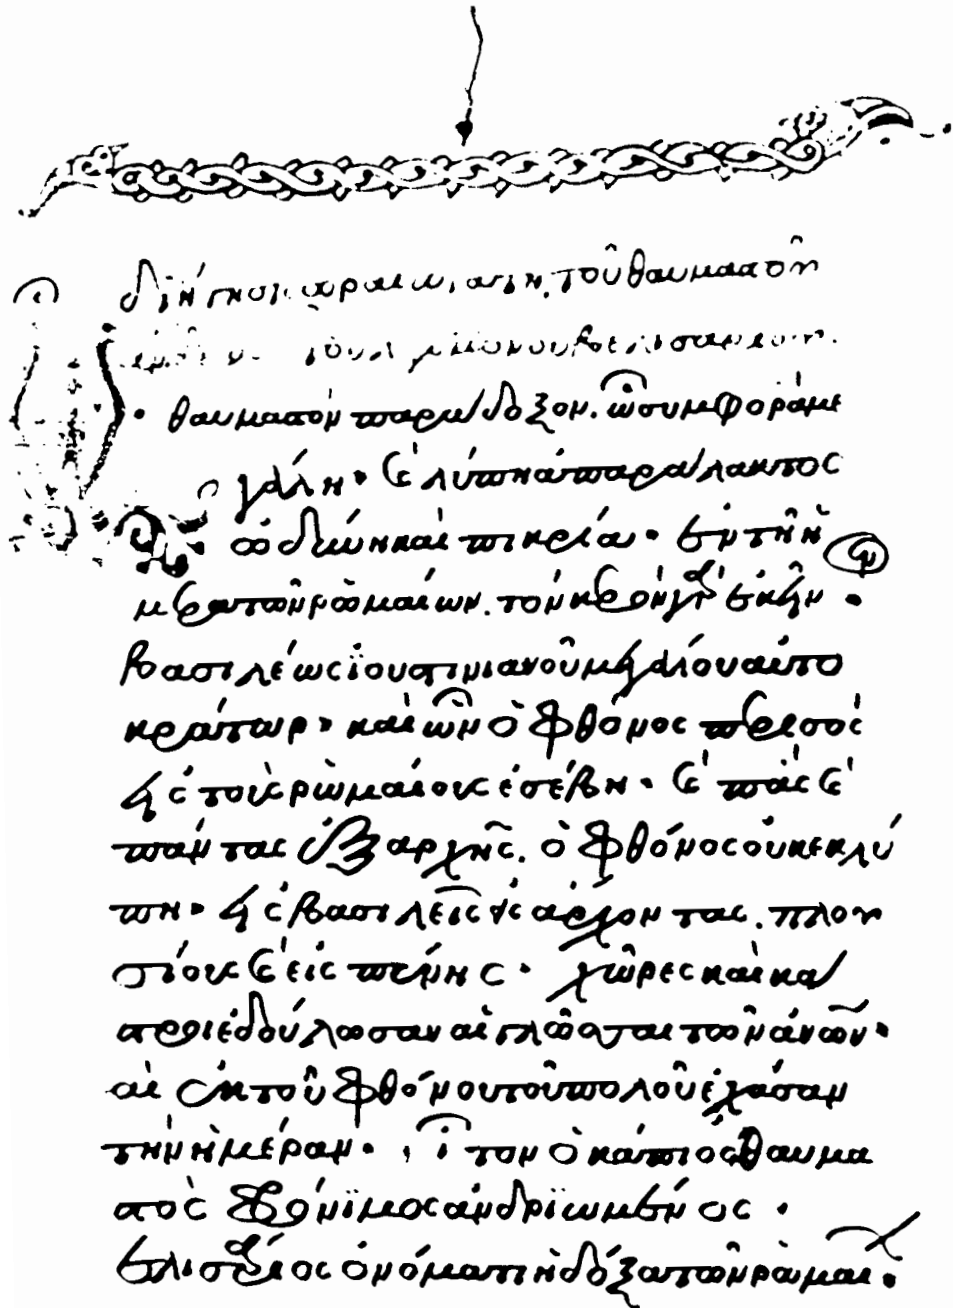 διήγησις ὡραιωτάτη. τοῦ θαυμαστοῦ
θαυμαστὸν παράδοξον. ὦ συμφορὰ με
γάλη· καὶ λύπη ἀπαράλακτος
ὀδύνη καὶ πικρία· ἐν τῆ ἡ
μέρα τῶν ρωμαίων. τὸν κερὸν
βασιλέως ϊουστινιανοῦ μεγάλου αὐτο
κράτωρ· καὶ ὢν ὁ φθόνος περισὸς
εἰς τοὺς ρωμαίους ἐσέβη· καὶ πᾶς καὶ
πάντας ἐξαρχῆς. ὁ φθόνος οὐκ ἐκλύ
πη· εἰς βασιλεῖς εἰς ἄρχοντας. πλου
σίους καὶ εἰς πένης· χῶρες καὶ κά
στρη ἐδούλωσαν αἱ γλῶσσαι τῶν ἀνῶν·
αἱ ἐκ τοῦ φθόνου τοῦ πολοῦ ἐχάσαν
τὴν ἡμέραν· ἦτον ὁ κάπιὸς θαυμα
στὸς φρόνϊμος ἀνδρϊωμένος·
ὀνόματι ἡ δόξα τῶν ρωμαι·